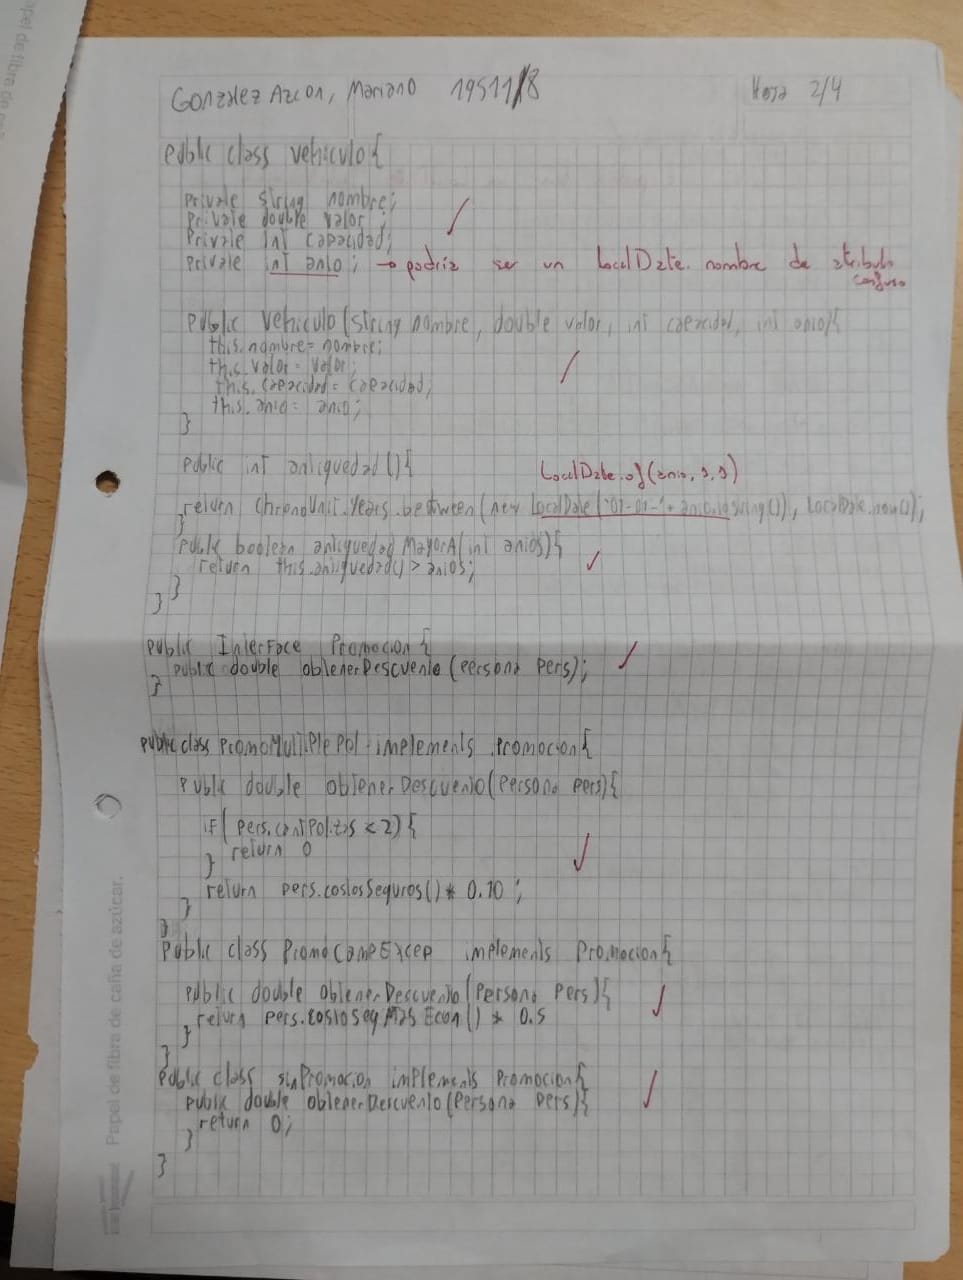 Gonzalez Azcon, Mariano 19511/8 Hoja 2/4
public class vehiculo{
private String nombre;
private double valor;
private int capacidad;
private int anio; → podría ser un LocalDate. nombre de atributo confuso
public vehiculo(string nombre, double valor, int capacidad, int anio){
this.nombre= nombre;
this.valor= valor;
this.capacidad= capacidad;
this.anio= anio;
}
public int antiguedad(){
LocalDate.of(anio, 1, 1)
return ChronoUnit.Years.between(new LocalDate("01-01-"+ anio.toString()), LocalDate.now());
}
public boolean antiguedadMayorA(int anios){
return this.antiguedad() > anios;
}
}
public Interface Promocion{
public double obtenerDescuento(Persona pers);
}
public class PromoMultiplePol implements Promocion{
public double obtenerDescuento(Persona pers){
if( pers.cantPolizas < 2){
return 0
}
return pers.costosSeguros() * 0.10 ;
}
}
public class PromoCampExcep implements Promocion{
public double obtenerDescuento(Persona pers){
return pers.costoSegMasEcon() * 0.5
}
}
public class sinPromocion implements Promocion{
public double obtenerDescuento(Persona pers){
return 0;
}
}
Papel de fibra de caña de azúcar.